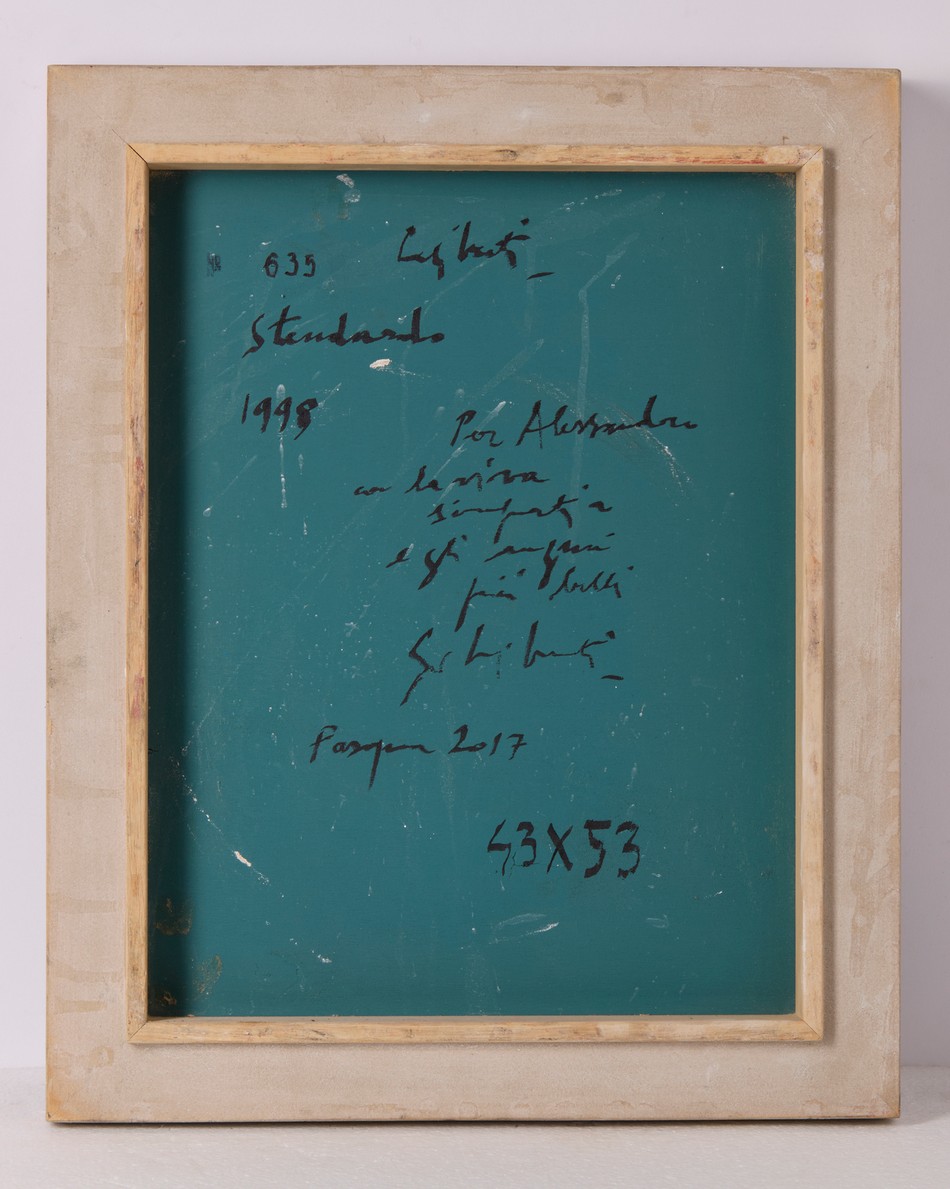 N° 635
Stendardo
1998
Per Alessandro
con la viva
simpatia
e gli auguri
più belli
Pasqua 2017
43X53